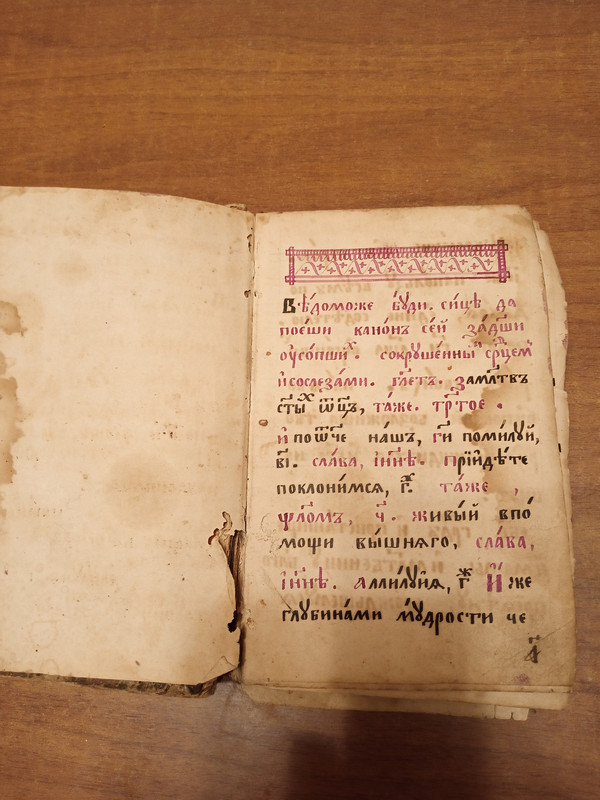 Вѣ́доможе бꙋ́ди. си́це да
пое́ши кано́нъ се́й зад꙯ши
оу҆со́пшиⷯ. сокрꙋше́нныⷨ ср꙯цемъ
и҆сослеза́ми. гл꙯етъ. замл꙯твъ
ст꙯ыⷯ ѿц꙯ъ, та́же. тр꙯тое.
и҆ поѿче нашъ, гд꙯и поми́лꙋй,
в҃і. сла́ва, і҆ны́нѣ. прїйдѣ́те
поклони́мся, г҃ⷤ. та́же,
ѱл꙯о́мъ, ч҃. живы́й впо́
мощи вы́шняго, сла́ва,
і҆ны́нѣ. аллилꙋ́йя, г҃ⷤ И҆́же
глꙋбина́ми мꙋ́дрости че